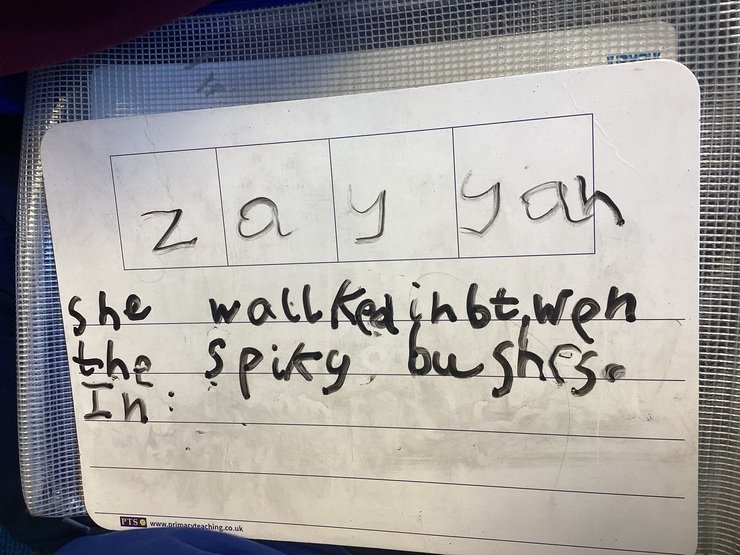 zayyan
she wallked inbt,wen
the spiky bushes.
In:
PTS www.primaryteaching.co.uk